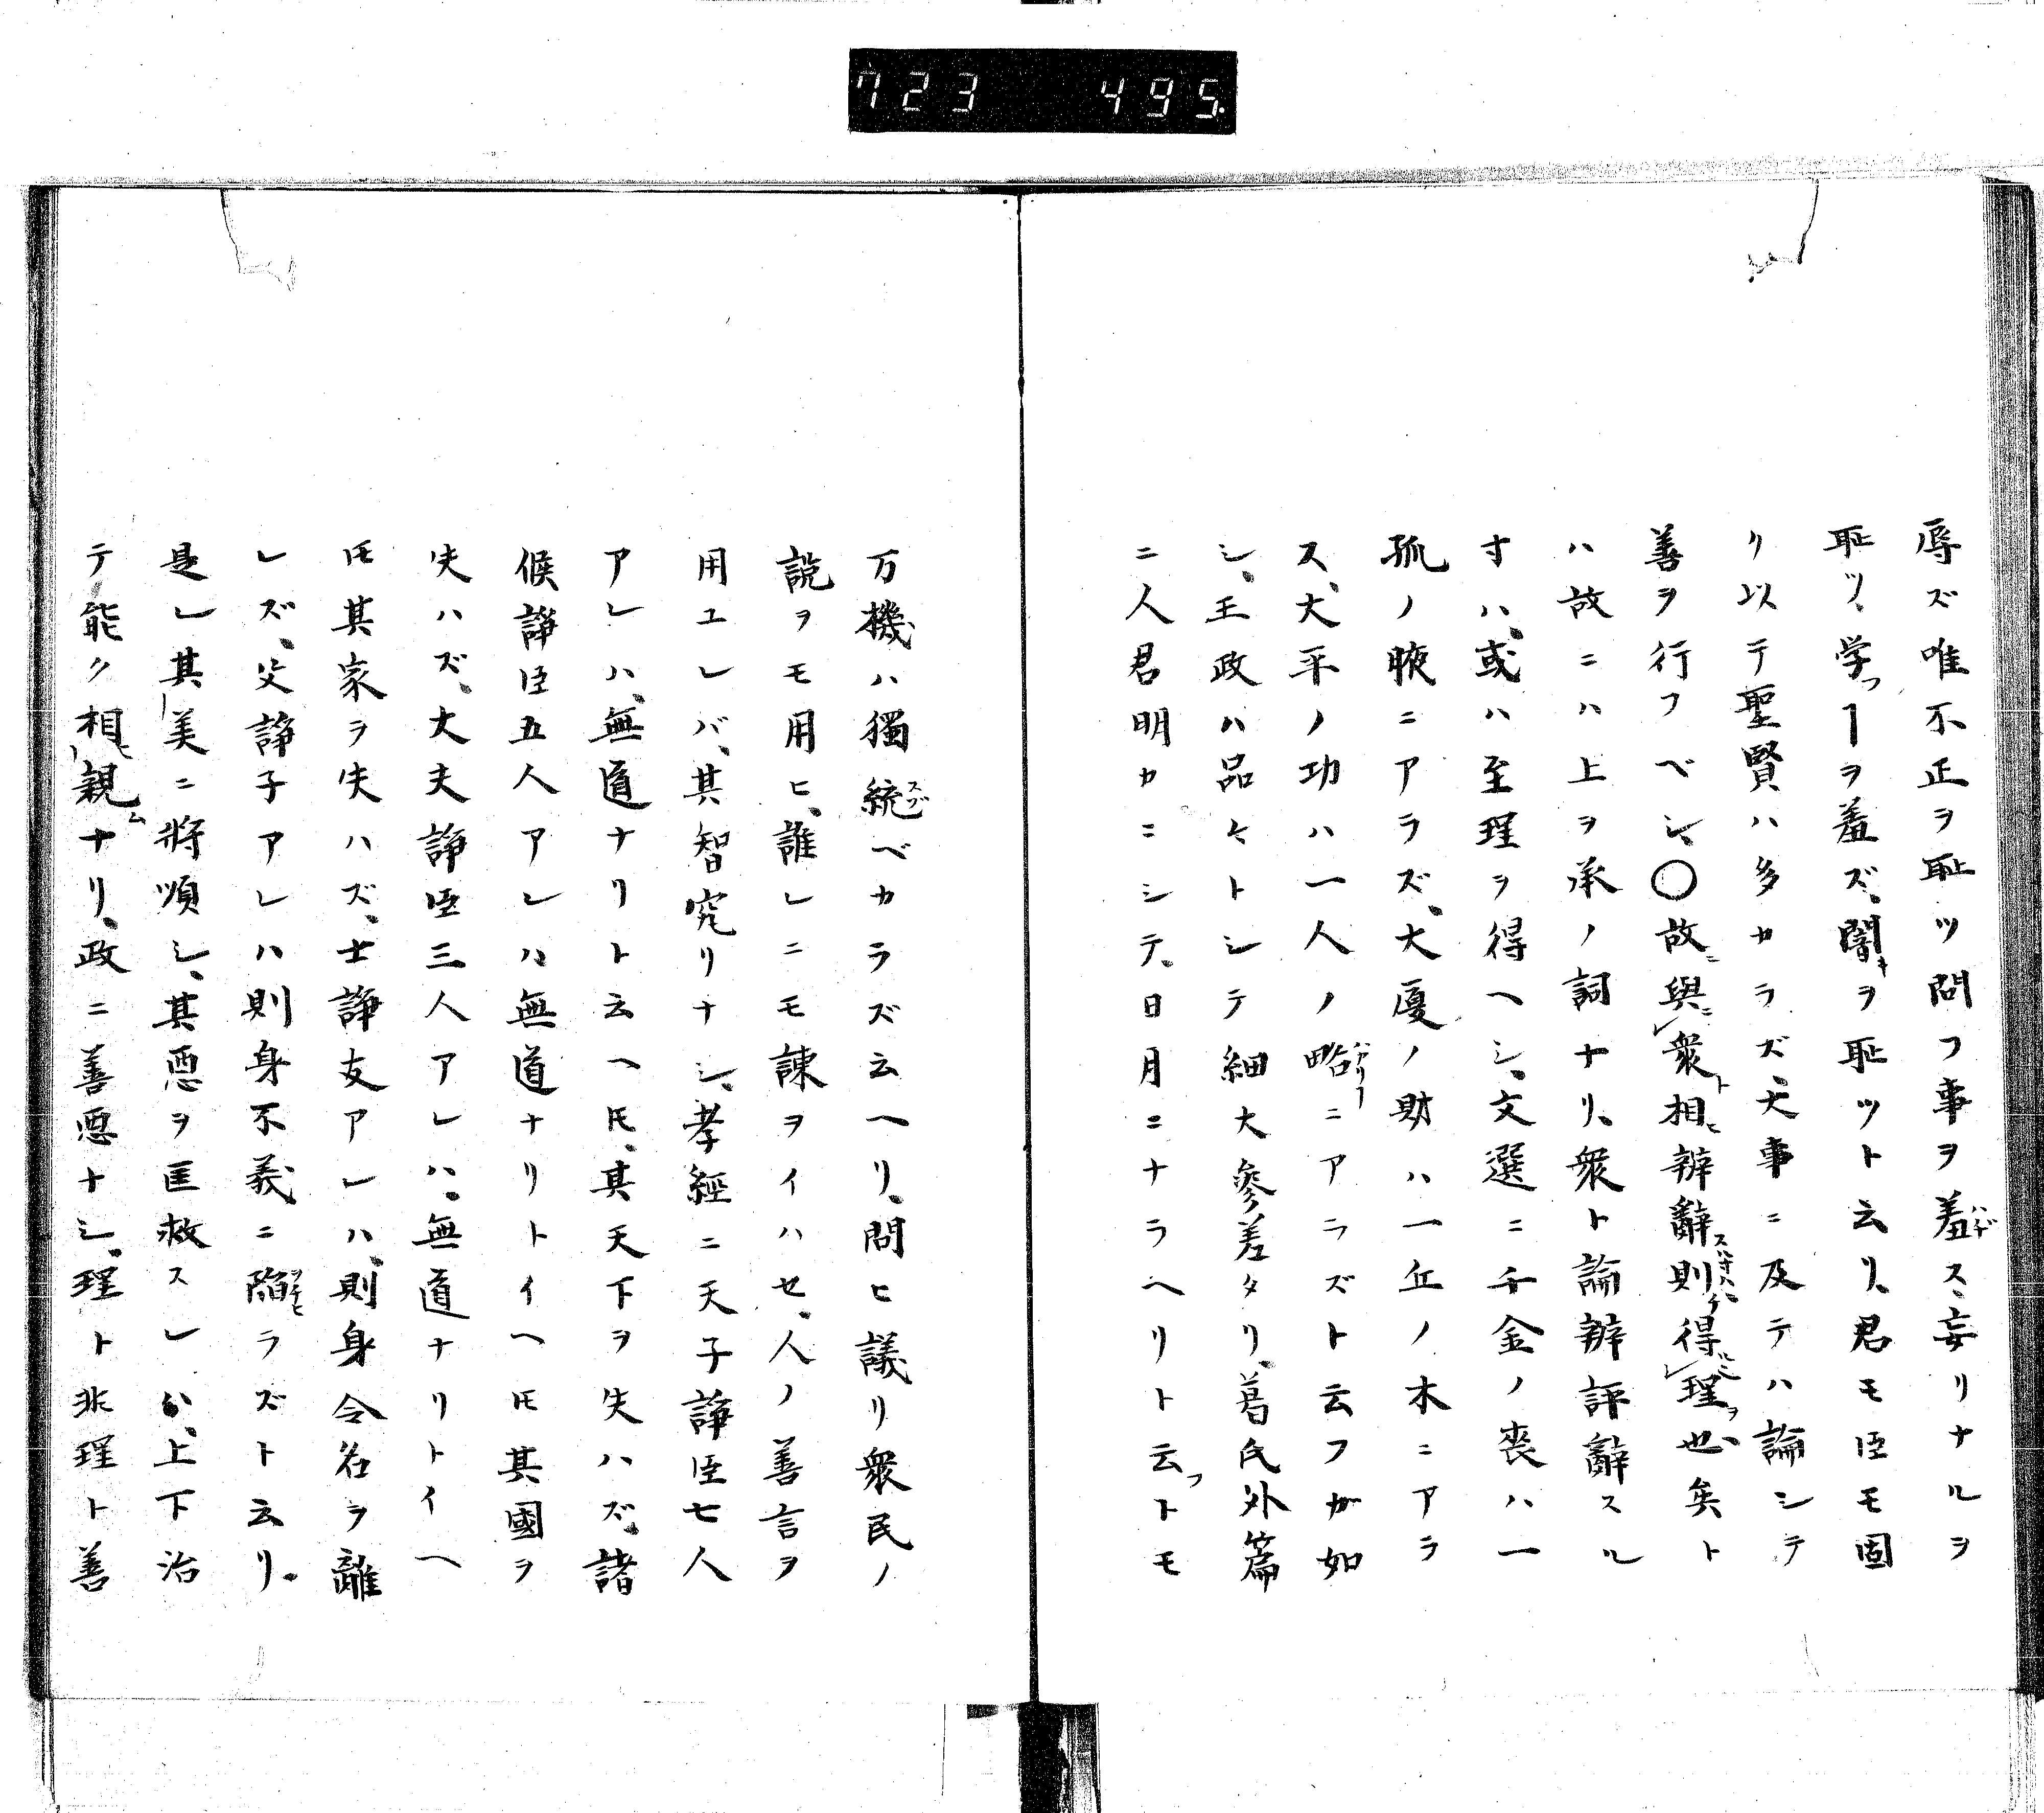 723 495
辱ズ唯不正ヲ恥ツ問フ事ヲ羞ス、妄リナルヲ
恥ツ、学フヿヲ羞ズ、闇キヲ恥ツト云リ、君モ臣モ固
リ以テ聖賢ハ多カラズ、大事ニ及テハ論シテ
善ヲ行フベシ、〇故ニ與ニ衆ト相ヒ辨辭スルトキハ則チ得ルニ理ヲ也、矣ト
ハ故ニハ上ヲ承ノ詞ナリ、衆ト論辨評辭スル
寸ハ、或ハ至理ヲ得ヘシ、文選ニ千金ノ裘ハ一
狐ノ腋ニアラズ、大廈ノ財ハ一丘ノ木ニアラ
ス、大平ノ功ハ一人ノ略ニアラズト云フガ如
シ、王政ハ品々トシテ細大參差タリ、葛氏外篇
ニ人君明カニシテ、日月ニナラヘリト云フトモ
万機ハ獨統ベカラズ云ヘリ、問ヒ議リ衆民ノ
説ヲモ用ヒ、誰レニモ諫ヲイハセ、人ノ善言ヲ
用ユレバ、其智究リナシ、孝經ニ天子諍臣七人
アレハ、無道ナリト云ヘ𪜈、其天下ヲ失ハズ、諸
候諍臣五人アレハ、無道ナリトイヘ𪜈其國ヲ
失ハズ、大夫諍臣三人アレハ、無道ナリトイヘ
𪜈其家ヲ失ハズ、士諍友アレハ、則身令名ヲ離
レズ、父諍子アレハ則身不義ニ陥ラズト云リ。
是レ其美ニ將順シ、其悪ヲ匡救スレハ、上下治
テ能ク相ヒ親ムナリ、政ニ善悪ナシ、理ト非理ト善